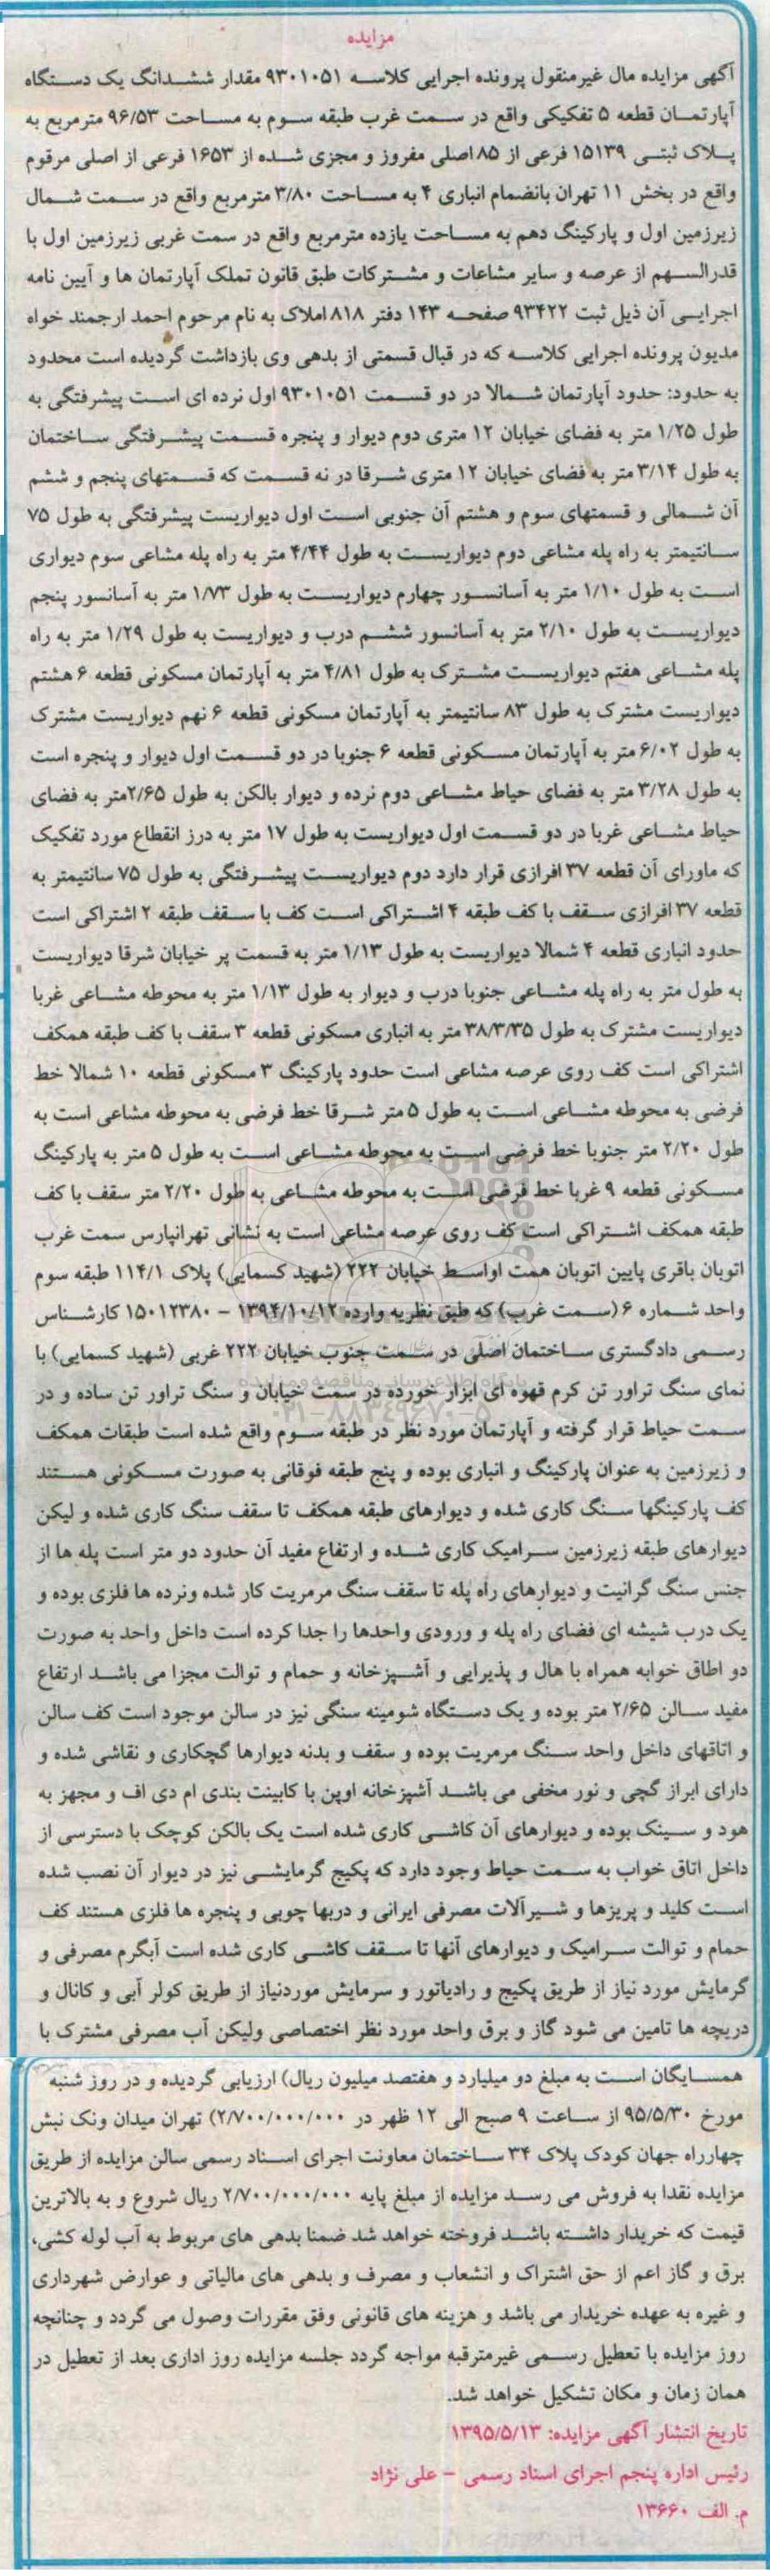 مزایده
آگهی مزایده مال غیرمنقول پرونده اجرایی کلاسه ۹۳۰۱۰۵۱ مقدار ششدانگ یک دستگاه
آپارتمان قطعه ۵ تفکیکی واقع در سمت غرب طبقه سوم به مساحت ۹۶/۵۳ مترمربع به
پلاک ثبتی ۱۵۱۳۹ فرعی از ۸۵ اصلی مفروز و مجزی شده از ۱۶۵۳ فرعی از اصلی مرقوم
واقع در بخش ۱۱ تهران بانضمام انباری ۴ به مساحت ۳/۸۰ مترمربع واقع در سمت شمال
زیرزمین اول و پارکینگ دهم به مساحت یازده مترمربع واقع در سمت غربی زیرزمین اول با
قدرالسهم از عرصه و سایر مشاعات و مشترکات طبق قانون تملک آپارتمان ها و آیین نامه
اجرایی آن ذیل ثبت ۹۳۴۲۲ صفحه ۱۴۳ دفتر ۸۱۸ املاک به نام مرحوم احمد ارجمند خواه
مدیون پرونده اجرایی کلاسه که در قبال قسمتی از بدهی وی بازداشت گردیده است محدود
به حدود: حدود آپارتمان شمالا در دو قسمت ۹۳۰۱۰۵۱ اول نرده ای است پیشرفتگی به
طول ۱/۲۵ متر به فضای خیابان ۱۲ متری دوم دیوار و پنجره قسمت پیشرفتگی ساختمان
به طول ۳/۱۴ متر به فضای خیابان ۱۲ متری شرقا در نه قسمت که قسمتهای پنجم و ششم
آن شمالی و قسمتهای سوم و هشتم آن جنوبی است اول دیواریست پیشرفتگی به طول ۷۵
سانتیمتر به راه پله مشاعی دوم دیواریست به طول ۴/۴۴ متر به راه پله مشاعی سوم دیواری
است به طول ۱/۱۰ متر به آسانسور چهارم دیواریست به طول ۱/۷۳ متر به آسانسور پنجم
دیواریست به طول ۲/۱۰ متر به آسانسور ششم درب و دیواریست به طول ۱/۲۹ متر به راه
پله مشاعی هفتم دیواریست مشترک به طول ۴/۸۱ متر به آپارتمان مسکونی قطعه ۶ هشتم
دیواریست مشترک به طول ۸۳ سانتیمتر به آپارتمان مسکونی قطعه ۶ نهم دیواریست مشترک
به طول ۶/۰۲ متر به آپارتمان مسکونی قطعه ۶ جنوبا در دو قسمت اول دیوار و پنجره است
به طول ۳/۲۸ متر به فضای حیاط مشاعی دوم نرده و دیوار بالکن به طول ۲/۶۵متر به فضای
حیاط مشاعی غربا در دو قسمت اول دیواریست به طول ۱۷ متر به درز انقطاع مورد تفکیک
که ماورای آن قطعه ۳۷ افرازی قرار دارد دوم دیواریست پیشرفتگی به طول ۷۵ سانتیمتر به
قطعه ۳۷ افرازی سقف با کف طبقه ۴ اشتراکی است کف با سقف طبقه ۲ اشتراکی است
حدود انباری قطعه ۴ شمالا دیواریست به طول ۱/۱۳ متر به قسمت پر خیابان شرقا دیواریست
به طول متر به راه پله مشاعی جنوبا درب و دیوار به طول ۱/۱۳ متر به محوطه مشاعی غربا
دیواریست مشترک به طول ۳۸/۳/۳۵ متر به انباری مسکونی قطعه ۳ سقف با کف طبقه همکف
اشتراکی است کف روی عرصه مشاعی است حدود پارکینگ ۳ مسکونی قطعه ۱۰ شمالا خط
فرضی به محوطه مشاعی است به طول ۵ متر شرقا خط فرضی به محوطه مشاعی است به
طول ۲/۲۰ متر جنوبا خط فرضی است به محوطه مشاعی است به طول ۵ متر به پارکینگ
مسکونی قطعه ۹ غربا خط فرضی است به محوطه مشاعی به طول ۲/۲۰ متر سقف با کف
طبقه همکف اشتراکی است کف روی عرصه مشاعی است به نشانی تهرانپارس سمت غرب
اتوبان باقری پایین اتوبان همت اواسط خیابان ۲۲۲ (شهید کسمایی) پلاک ۱۱۴/۱ طبقه سوم
واحد شماره ۶ (سمت غرب) که طبق نظریه وارده ۱۳۹۴/۱۰/۱۲ – ۱۵۰۱۲۳۸۰ کارشناس
رسمی دادگستری ساختمان اصلی در سمت جنوب خیابان ۲۲۲ غربی (شهید کسمایی) با
نمای سنگ تراور تن کرم قهوه ای ابزار خورده در سمت خیابان و سنگ تراور تن ساده و در
سمت حیاط قرار گرفته و آپارتمان مورد نظر در طبقه سوم واقع شده است طبقات همکف
و زیرزمین به عنوان پارکینگ و انباری بوده و پنج طبقه فوقانی به صورت مسکونی هستند
کف پارکینگها سنگ کاری شده و دیوارهای طبقه همکف تا سقف سنگ کاری شده و لیکن
دیوارهای طبقه زیرزمین سرامیک کاری شده و ارتفاع مفید آن حدود دو متر است پله ها از
جنس سنگ گرانیت و دیوارهای راه پله تا سقف سنگ مرمریت کار شده ونرده ها فلزی بوده و
یک درب شیشه ای فضای راه پله و ورودی واحدها را جدا کرده است داخل واحد به صورت
دو اطاق خوابه همراه با هال و پذیرایی و آشپزخانه و حمام و توالت مجزا می باشد ارتفاع
مفید سالن ۲/۶۵ متر بوده و یک دستگاه شومینه سنگی نیز در سالن موجود است کف سالن
و اتاقهای داخل واحد سنگ مرمریت بوده و سقف و بدنه دیوارها گچکاری و نقاشی شده و
دارای ابراز گچی و نور مخفی می باشد آشپزخانه اوپن با کابینت بندی ام دی اف و مجهز به
هود و سینک بوده و دیوارهای آن کاشی کاری شده است یک بالکن کوچک با دسترسی از
داخل اتاق خواب به سمت حیاط وجود دارد که پکیج گرمایشی نیز در دیوار آن نصب شده
است کلید و پریزها و شیرآلات مصرفی ایرانی و دربها چوبی و پنجره ها فلزی هستند کف
حمام و توالت سرامیک و دیوارهای آنها تا سقف کاشی کاری شده است آبگرم مصرفی و
گرمایش مورد نیاز از طریق پکیج و رادیاتور و سرمایش موردنیاز از طریق کولر آبی و کانال و
دریچه ها تامین می شود گاز و برق واحد مورد نظر اختصاصی ولیکن آب مصرفی مشترک با
همسایگان است به مبلغ دو میلیارد و هفتصد میلیون ریال) ارزیابی گردیده و در روز شنبه
مورخ ۹۵/۵/۳۰ از ساعت ۹ صبح الی ۱۲ ظهر در ۲/۷۰۰/۰۰۰/۰۰۰) تهران میدان ونک نبش
چهارراه جهان کودک پلاک ۳۴ ساختمان معاونت اجرای اسناد رسمی سالن مزایده از طریق
مزایده نقدا به فروش می رسد مزایده از مبلغ پایه ۲/۷۰۰/۰۰۰/۰۰۰ ریال شروع و به بالاترین
قیمت که خریدار داشته باشد فروخته خواهد شد ضمنا بدهی های مربوط به آب لوله کشی،
برق و گاز اعم از حق اشتراک و انشعاب و مصرف و بدهی های مالیاتی و عوارض شهرداری
و غیره به عهده خریدار می باشد و هزینه های قانونی وفق مقررات وصول می گردد و چنانچه
روز مزایده با تعطیل رسمی غیرمترقبه مواجه گردد جلسه مزایده روز اداری بعد از تعطیل در
همان زمان و مکان تشکیل خواهد شد.
تاریخ انتشار آگهی مزایده: ۱۳۹۵/۵/۱۳
رئیس اداره پنجم اجرای اسناد رسمی – علی نژاد
م. الف ۱۳۶۶۰